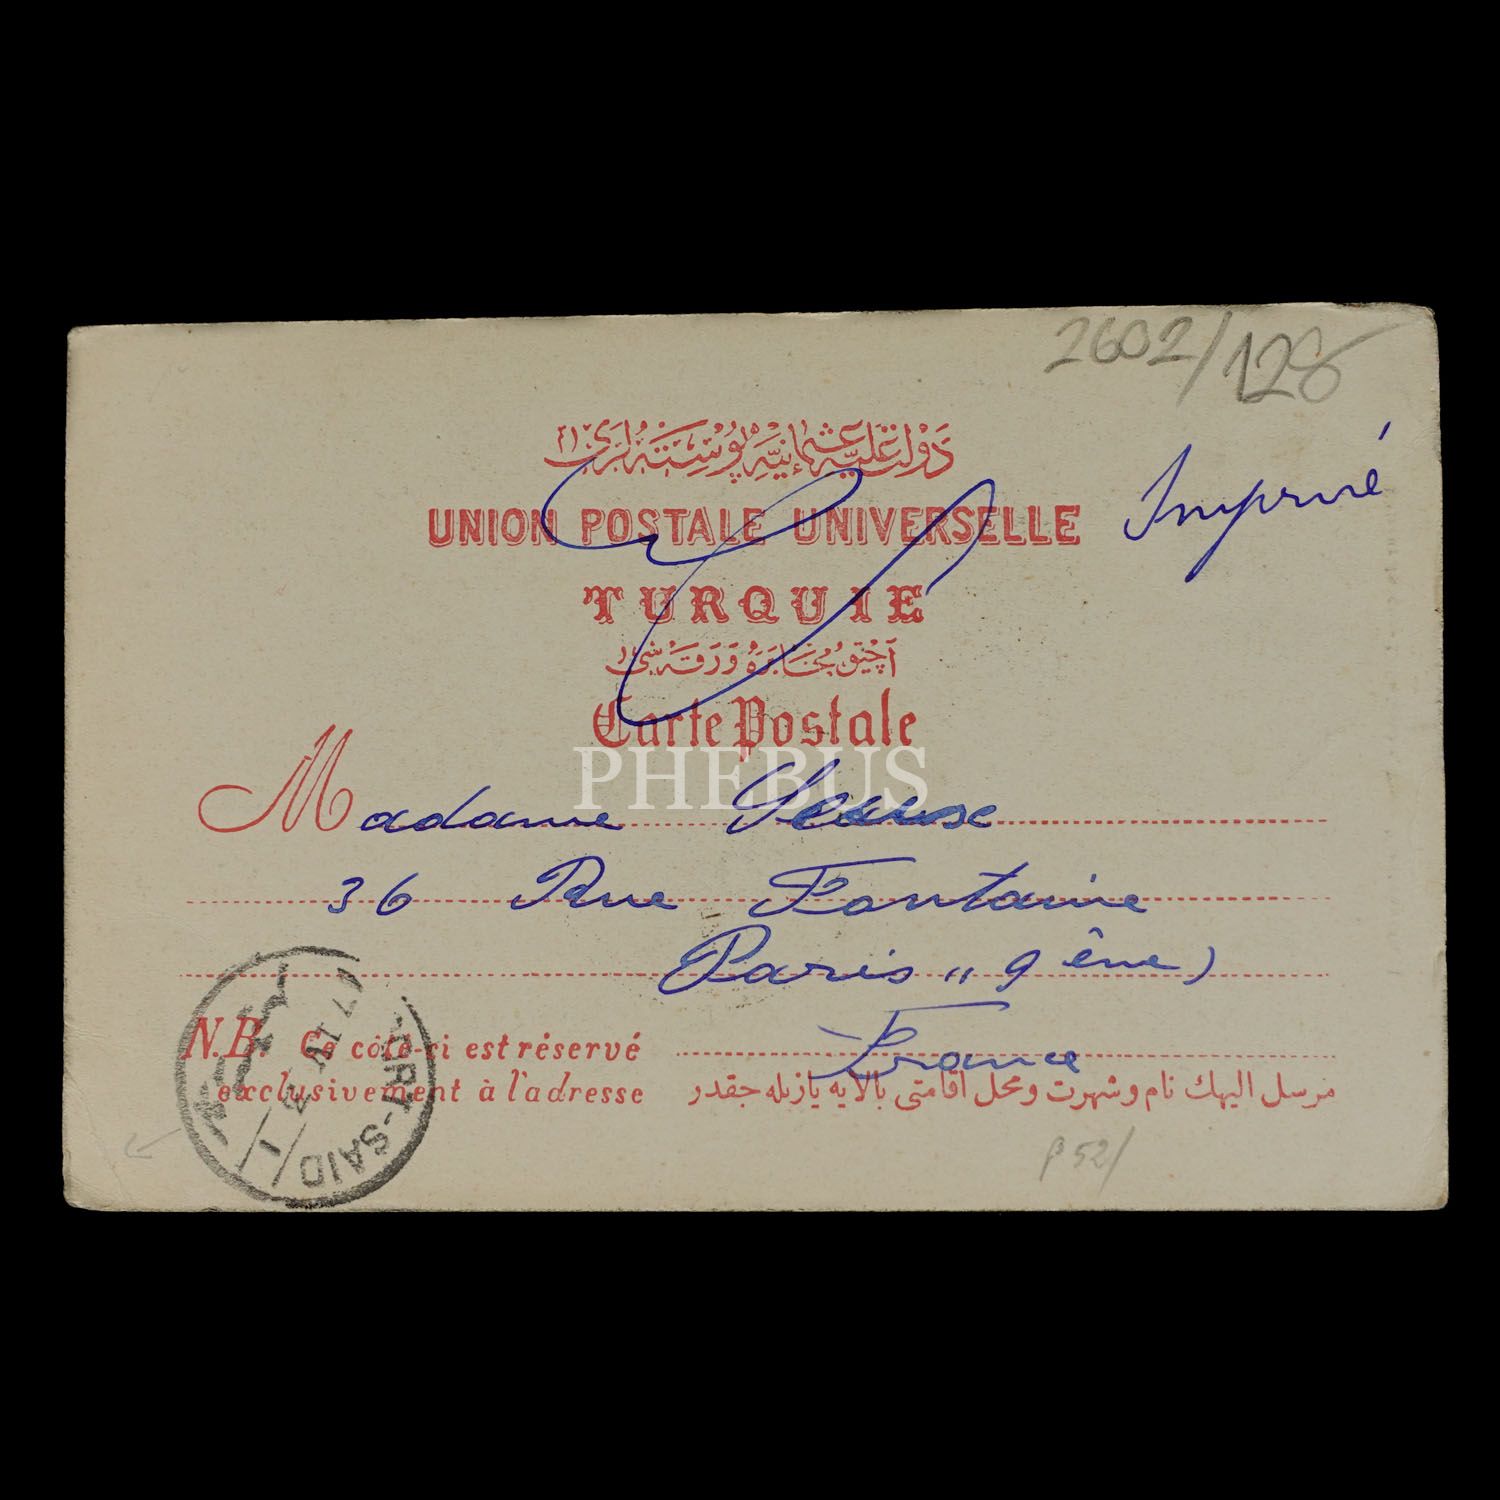 2602/128
دولت علیه عثمانیه پوسته لری
Imprimé
UNION POSTALE UNIVERSELLE
TURQUIE
آچیق مخابره ورقه سی
Carte Postale
PHEBUS
Madame
36 Rue Fontaine
Paris "9 ème)
France
N.B. Ce côté-ci est réservé
exclusivement à l'adresse
مرسل الیهك نام و شهرت و محل اقامتی بالایه یازیله جقدر
PORT-SAID